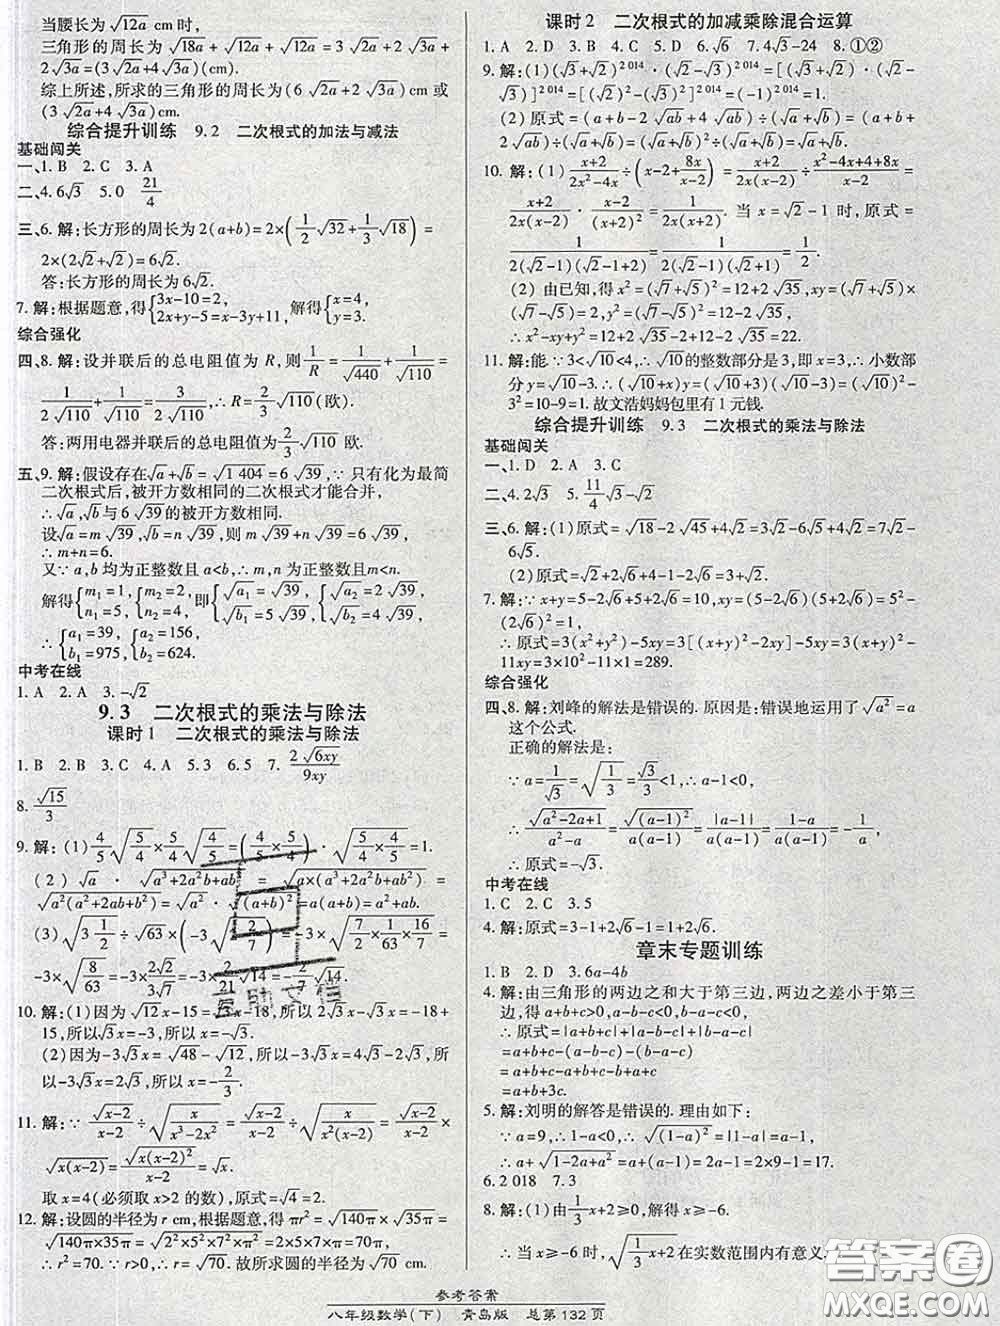 当腰长为√12a cm时,
三角形的周长为√18a+√12a+√12a=3√2a+2√3a+
2√3a=(3√2a+4√3a)(cm).
综上所述,所求的三角形的周长为(6√2a+2√3a)cm或
(3√2a+4√3a)cm.
综合提升训练 9.2 二次根式的加法与减法
基础闯关
一、1. B 2. C 3. A
二、4. 6√3 5. 0 21/4
三、6. 解:长方形的周长为2(a+b)=2×(1/2√32+1/3√18)=
2×(2√2+√2)=6√2.
答:长方形的周长为6√2.
7. 解:根据题意,得{3x-10=2, 2x+y-5=x-3y+11, 解得{x=4, y=3.
综合强化
四、8. 解:设并联后的总电阻值为R,则1/R=1/√440+1/√110=
1/(2√110)+1/√110=3/(2√110), ∴R=2/3√110(欧).
答:两用电器并联后的总电阻值为2/3√110 欧.
五、9. 解:假设存在√a+√b=√1 404=6√39,∵只有化为最简
二次根式后,被开方数相同的二次根式才能合并,
∴√a,√b与6√39的被开方数相同.
设√a=m√39,√b=n√39,则m√39+n√39=6√39,
∴m+n=6.
又∵a,b均为正整数且a<b,∴m,n为正整数且m<n.
解得{m₁=1, n₁=5, {m₂=2, n₂=4, 即{√a₁=√39, √b₁=5√39, {√a₂=2√39, √b₂=4√39,
∴{a₁=39, b₁=975, {a₂=156, b₂=624.
中考在线
1. A 2. A 3. -√2
9.3 二次根式的乘法与除法
课时1 二次根式的乘法与除法
1. B 2. B 3. C 4. A 5. 3 6. 5 7. 2√6xy/9xy
8. √15/3
9. 解:(1)4/5√5/4×5/4√4/5=(4/5×5/4)√5/4×4/5=1.
(2)√a·√a³+2a²b+ab²=√a×(a³+2a²b+ab²)=
√a²(a²+2ab+b²)=√a²·√(a+b)²=a(a+b)=a²+ab.
(3)√3 1/2÷√63×(-3√2/7)=-3×√7/2×1/63×2/7=
-3×√8/63=-3×2/3√2/7=-2/21√14=-2/7√14.
10. 解:(1)因为√12x-15=√3x-18,所以2√3x-√3x=-18+
15,所以√3x=-3,所以x=-√3.
(2)因为-3√3x=√48-√12,所以-3√3x=4√3-2√3,所
以-3√3x=2√3,所以x=-2/3.
11. 解:√x-2/x-2÷√x/x³-2x²=√x-2/x-2×√x³-2x²/x=√x-2/x-2×
√x(x-2)=√x(x-2)²/x-2=√x.
取x=4(必须取x>2的数),原式=√4=2.
12. 解:设圆的半径为r cm,根据题意,得πr²=√140π×√35π=
√140π×35π=√2²×5²×7²×π²=2×5×7×π=70π,
∴r²=70. ∵r>0,∴r=√70. 故所求圆的半径为√70cm.
课时2 二次根式的加减乘除混合运算
1. A 2. D 3. B 4. C 5. D 6. √6 7. 4√3-24 8. ①②
9. 解:(1)(√3+√2)²⁰¹⁴·(√2-√3)²⁰¹⁴=[(√3+√2)(√2-
√3)]²⁰¹⁴=[(√2)²-(√3)²]²⁰¹⁴=(-1)²⁰¹⁴=1.
(2)原式=(a+b-2√ab+4√ab)÷(√a+√b)=(a+b+
2√ab)÷(√a+√b)=(√a+√b)²÷(√a+√b)=√a+√b.
10. 解:(1)x+2/2x²-4x÷(x-2+8x/x-2)=x+2/2x(x-2)÷x²-4x+4+8x/x-2=
x+2/2x(x-2)·x-2/(x+2)²=1/2x(x+2). 当x=√2-1时,原式=
1/2(√2-1)(√2-1+2)=1/2(√2-1)(√2+1)=1/2.
(2)由已知,得x²=(√7+√5)²=12+2√35,xy=(√7+√5)×
(√7-√5)=2,y²=(√7-√5)²=12-2√35,
∴x²-xy+y²=12+2√35-2+12-2√35=22.
11. 解:能. ∵3<√10<4,∴√10的整数部分是3,即x=3,∴小数部
分y=√10-3. ∴y(√10+x)=(√10-3)(√10+3)=(√10)²-
3²=10-9=1. 故文浩妈妈包里有1元钱.
综合提升训练 9.3 二次根式的乘法与除法
基础闯关
一、1. D 2. A 3. C
二、4. 2√3 5. 11/4√3-√2
三、6. 解:(1)原式=√18-2√45+4√2=3√2-6√5+4√2=7√2-
6√5.
(2)原式=√2+2√6+4√2-2√6=3+√2.
7. 解:∵x+y=5-2√6+5+2√6=10,xy=(5-2√6)(5+2√6)=5²-
(2√6)²=1,
∴原式=3(x²+y²)-5xy=3[(x+y)²-2xy]-5xy=3(x+y)²-
11xy=3×10²-11×1=289.
综合强化
四、8. 解:刘峰的解法是错误的. 原因是:错误地运用了√a²=a
这个公式.
正确的解法是:
∵a=1/√3=√1/3=√3/3<1,∴a-1<0,
∴√a²-2a+1/a²-a=√(a-1)²/a(a-1)=|a-1|/a(a-1)=1-a/a(a-1)=-1/a,
∴原式=-√3.
中考在线
1. C 2. C 3. 5
4. 解:原式=3-1+2√6-1+√6=1+2√6.
章末专题训练
1. B 2. D 3. 6a-4b
4. 解:由三角形的两边之和大于第三边,两边之差小于第三
边,得a+b+c>0,a-b-c<0,b-a-c<0,
∴原式=|a+b+c|+|a-b-c|-|b-a-c|
=a+b+c-(a-b-c)-(b-a-c)
=a+b+c-a+b+c-b+a+c
=a+b+3c.
5. 解:刘明的解答是错误的. 理由如下:
∵a=9,∴1-a<0,∴√(1-a)²=|1-a|=a-1,
∴a+√1-2a+a²=a+a-1=2a-1=2×9-1=17.
6. 2 018 7. 3
8. 解:(1)由1/3x+2≥0,解得x≥-6.
∴当x≥-6时,√1/3x+2在实数范围内有意义.
参考答案
八年级数学(下) 青岛版 总第132页
答案圈
MXQE.COM